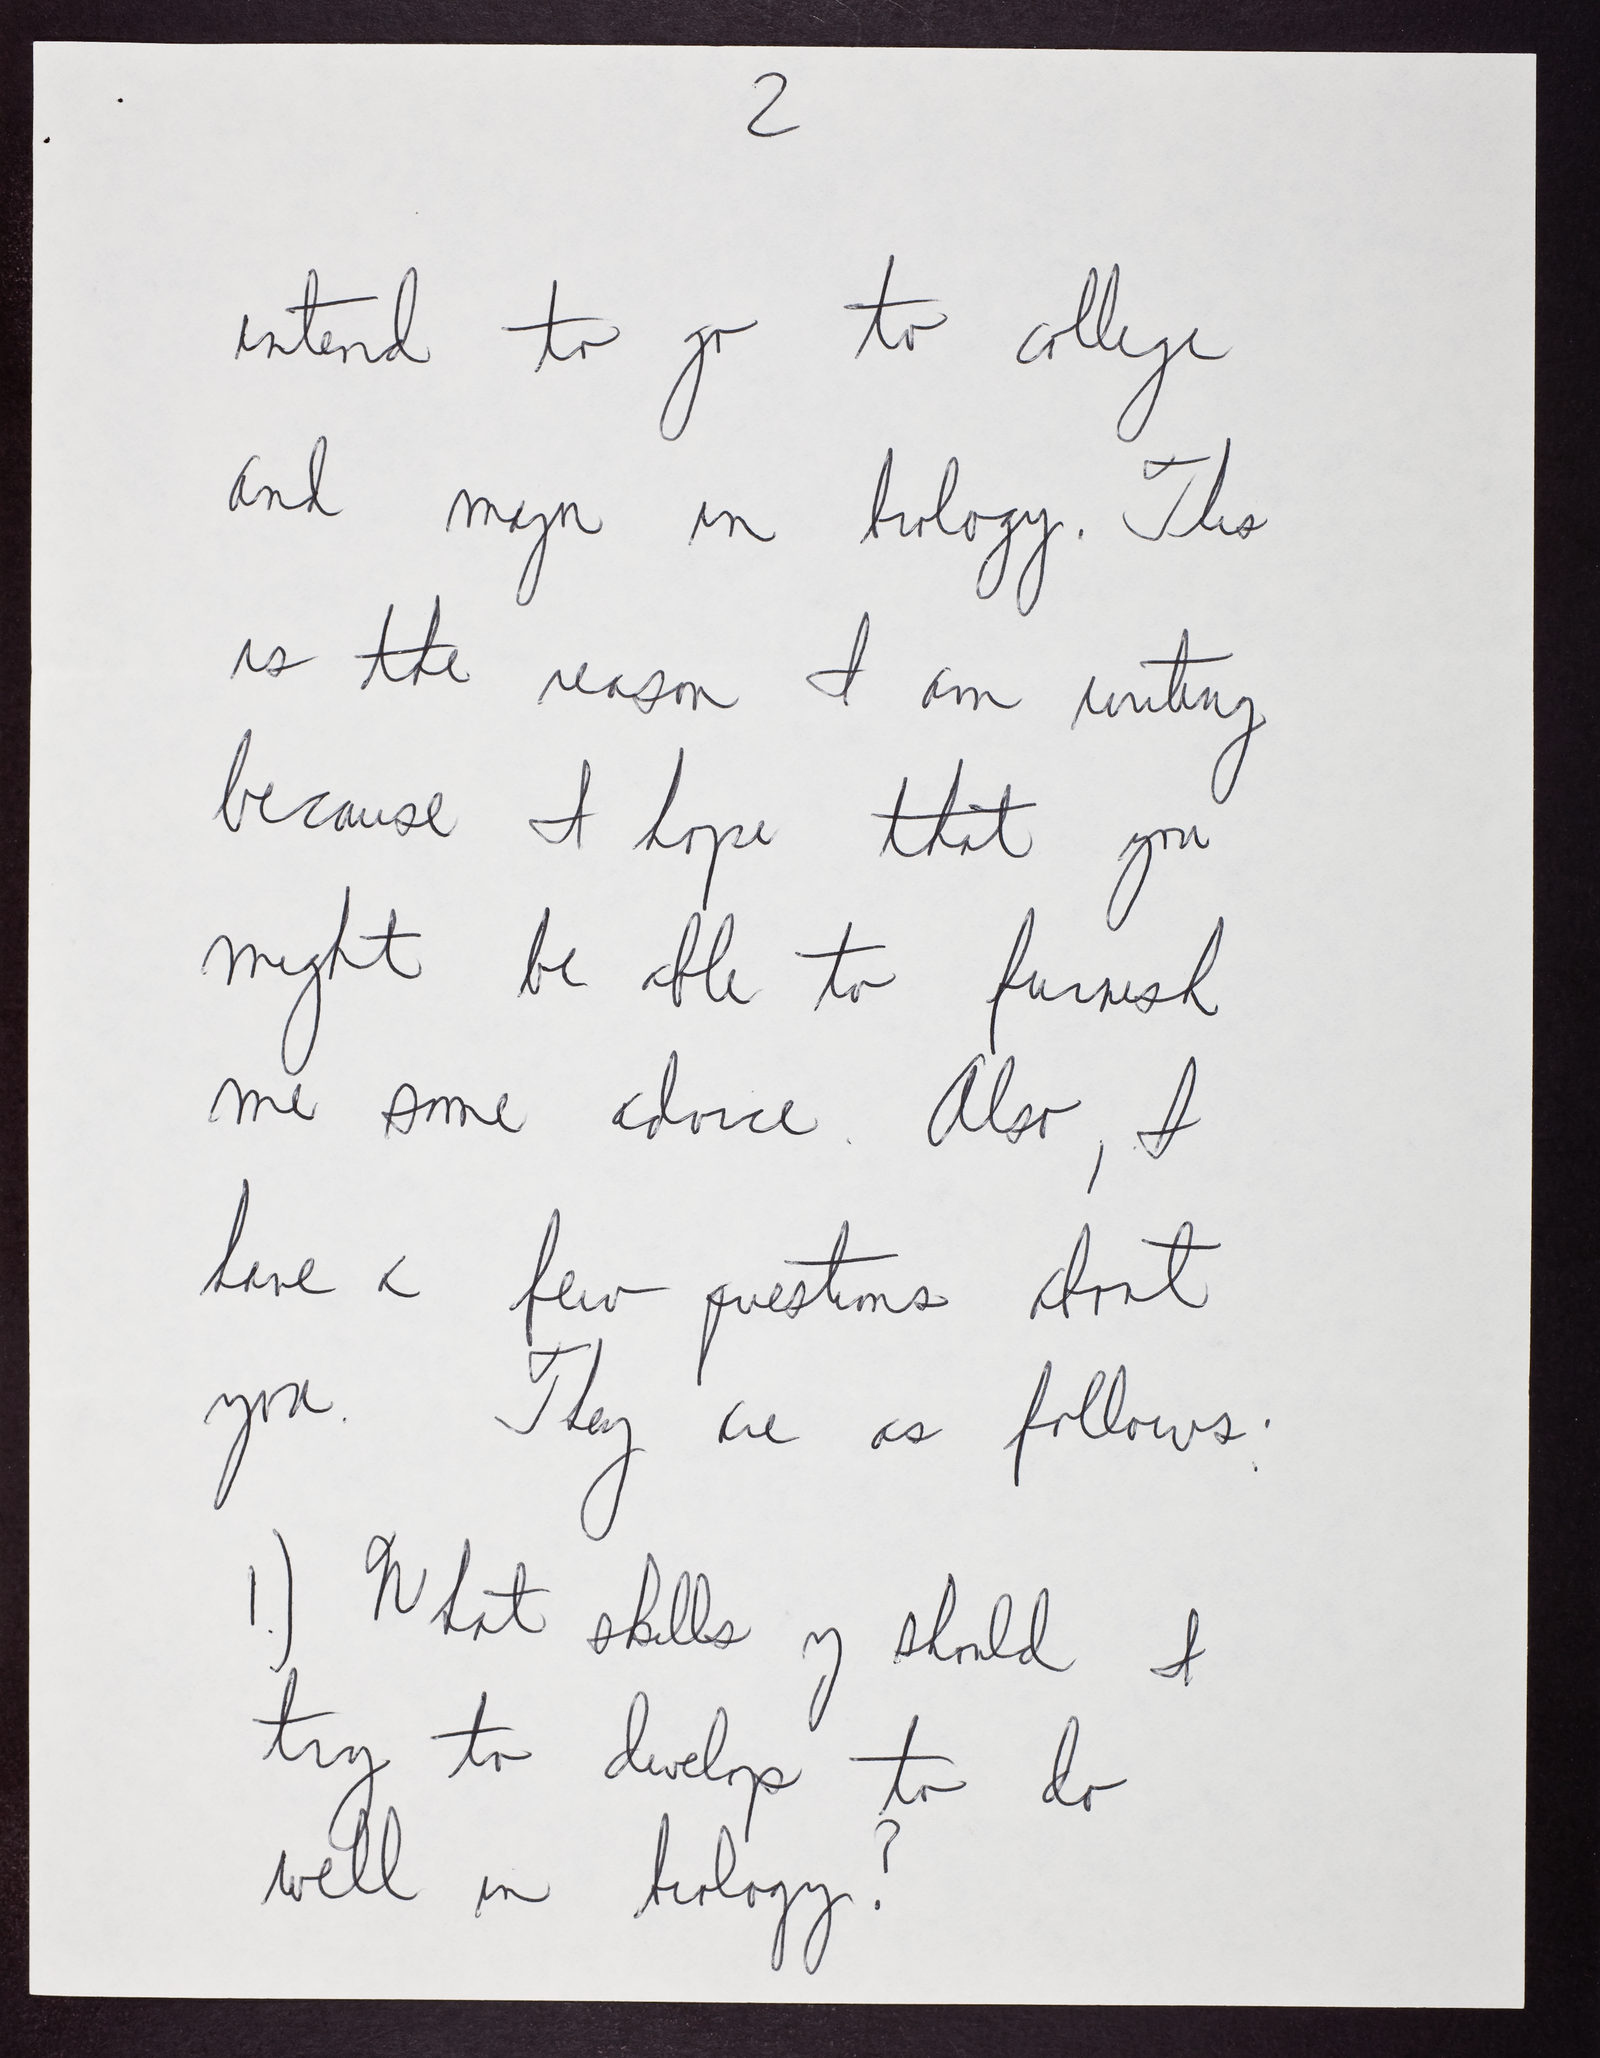 2
intend to go to college
and major in biology. This
is the reason I am writing
because I hope that you
might be able to furnish
me some advice. Also, I
have a few questions about
you. They are as follows:
1.) What skills y should I
try to develop to do
well in biology?